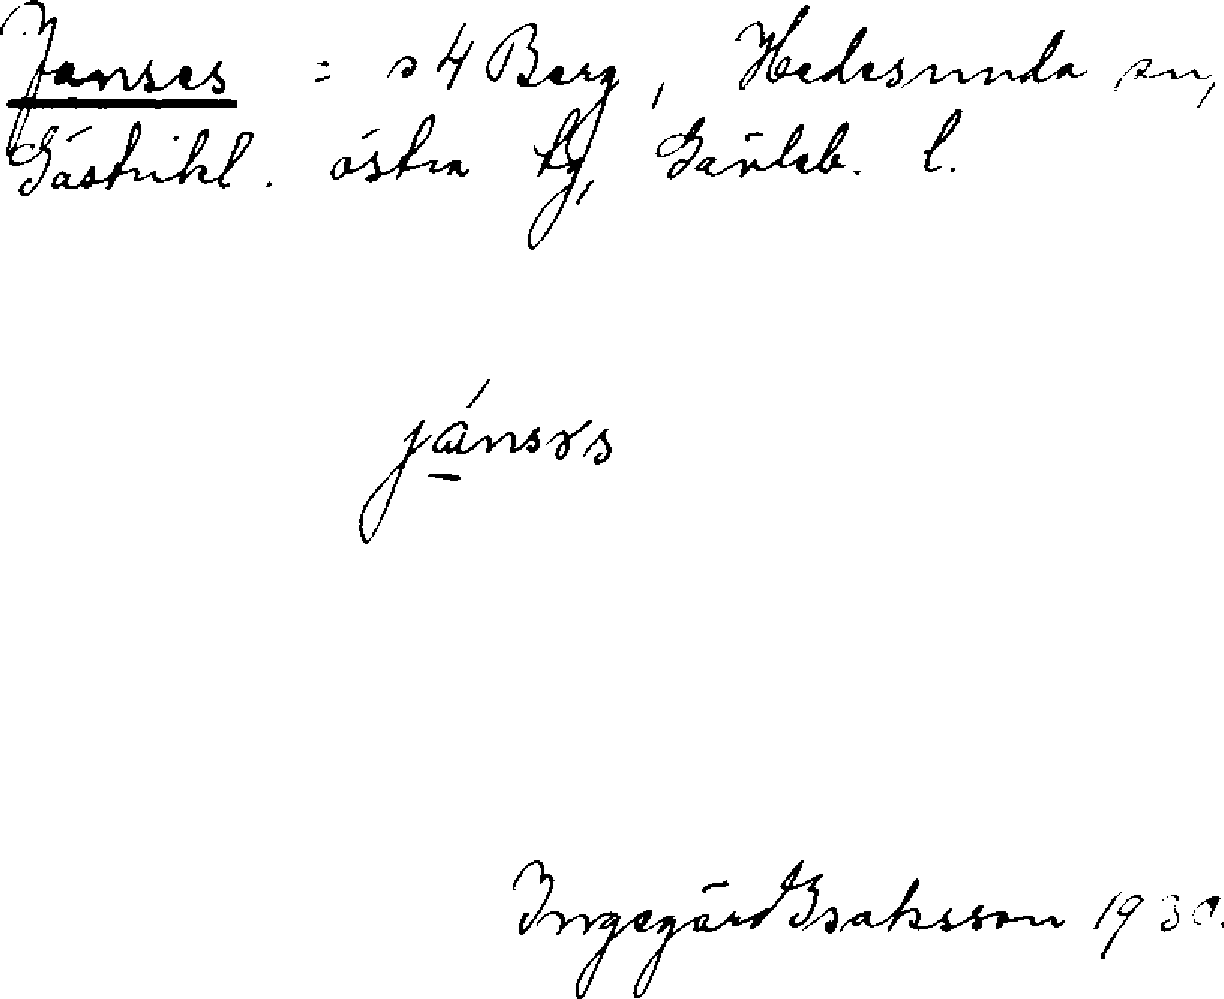 Janses = s 4 Berg, Hedesunda sn,
Gästrikl. östra tg, Gävleb. l.
jánsɤs
Ingegärd Isaksson 1930.